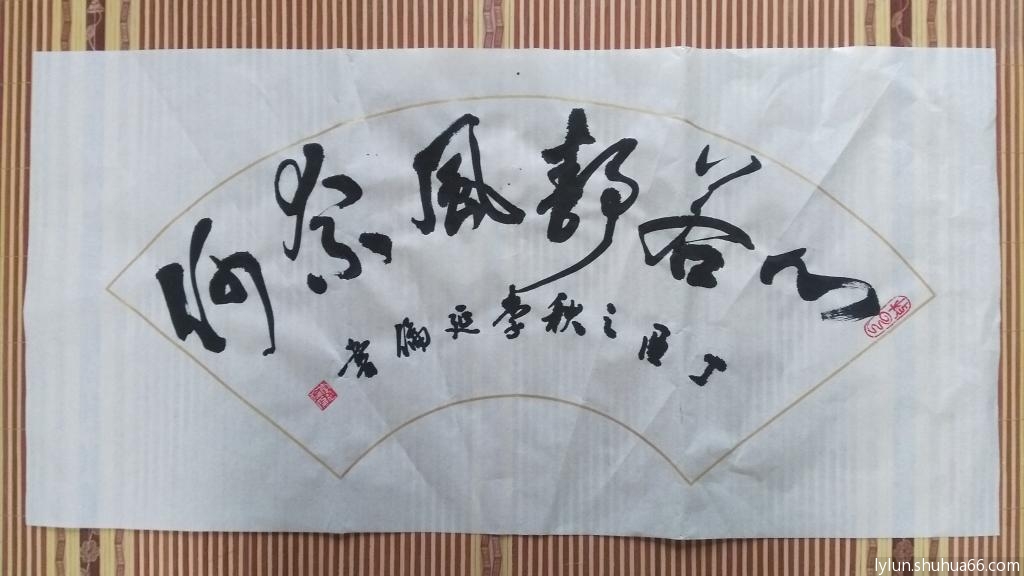 心若静風奈何
丁酉之秋李延倫書
lylun.shuhua66.com